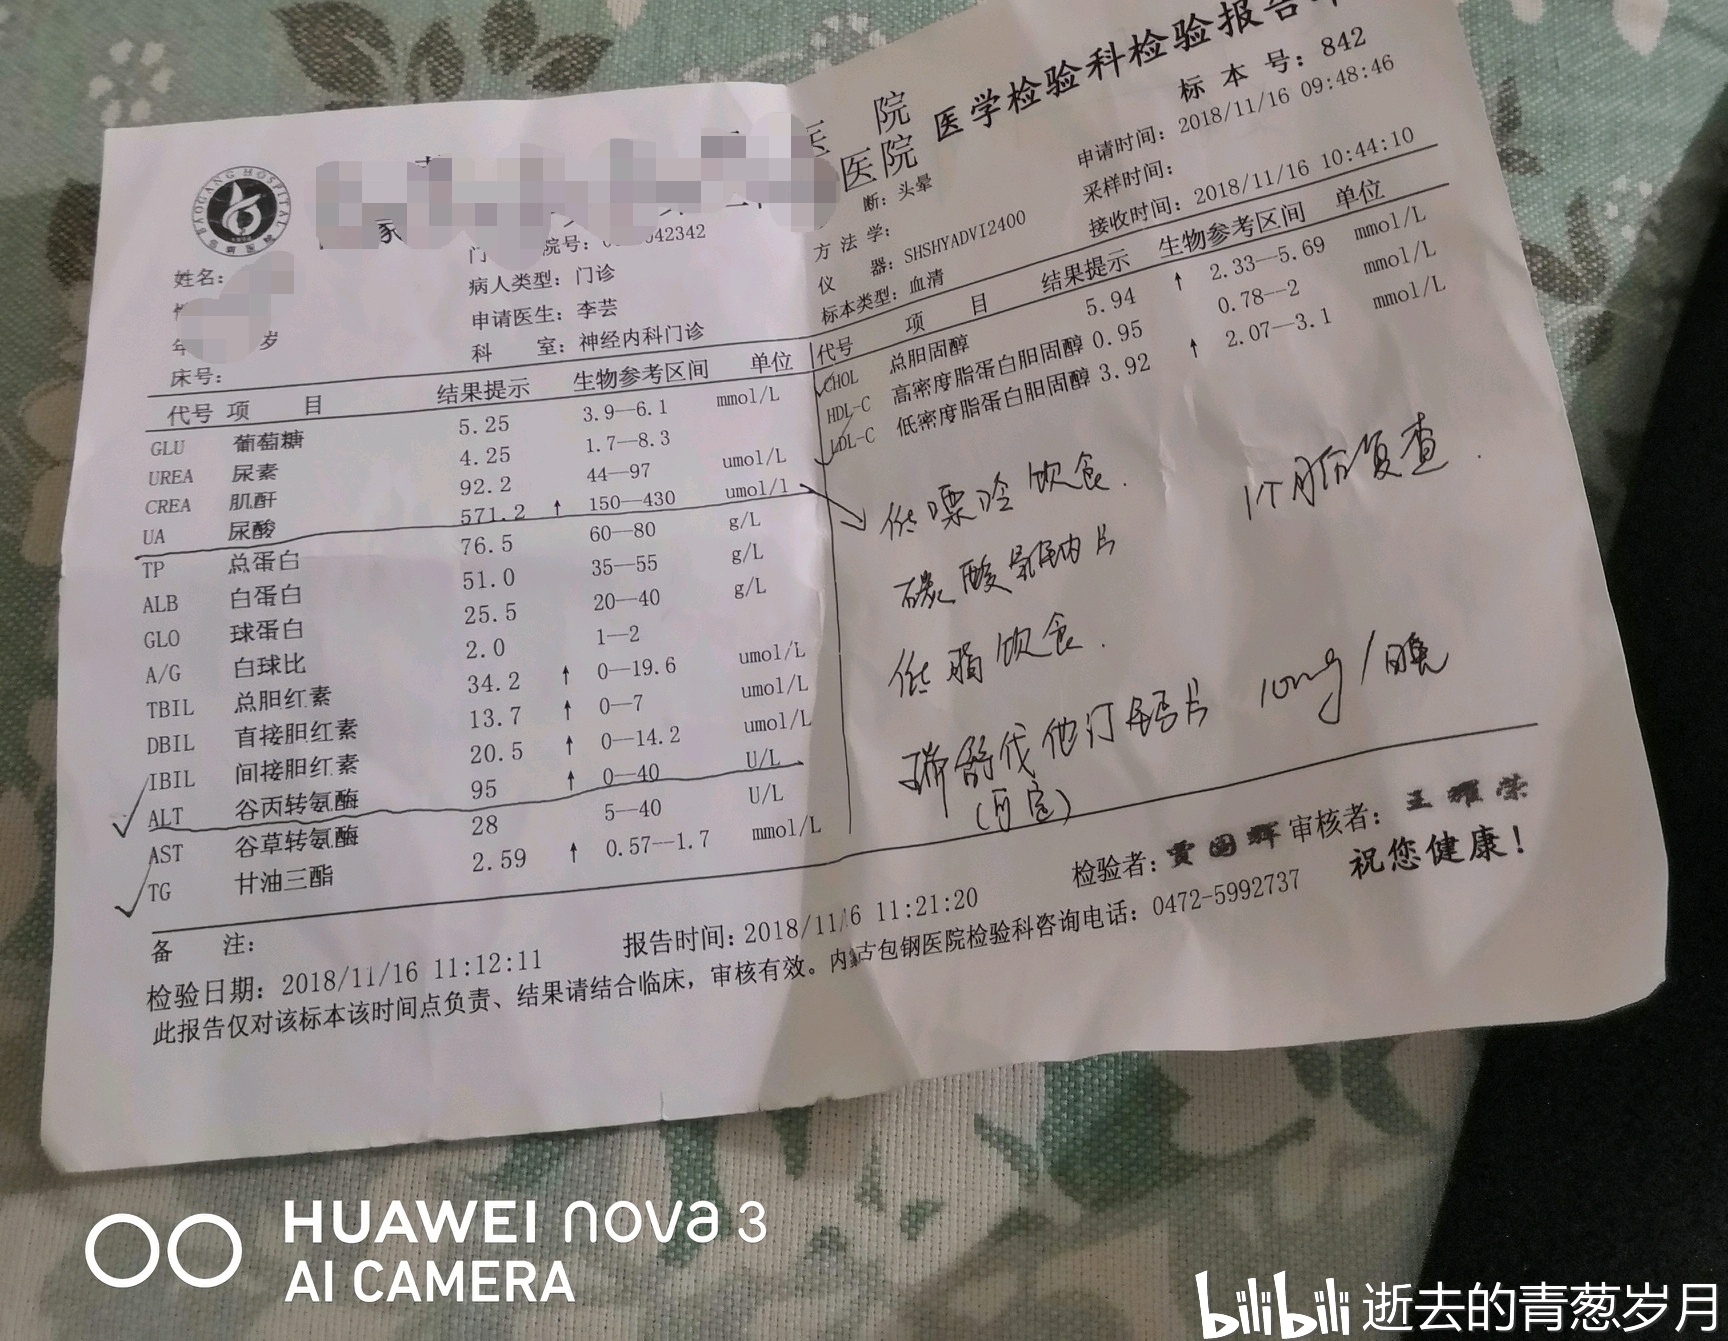 院
医院 医学检验科检验报告单
BAOGANG HOSPITAL
标 本 号: 842
家
姓名:
042342
断: 头晕
申请时间: 2018/11/16 09:48:46
病人类型: 门诊
方 法 学:
采样时间:
申请医生: 李芸
仪 器: SHSHYADVI2400
接收时间: 2018/11/16 10:44:10
岁
科 室: 神经内科门诊
标本类型: 血清
床号:
代号 项 目 结果提示 生物参考区间 单位
GLU 葡萄糖 5.25 3.9—6.1 mmol/L
UREA 尿素 4.25 1.7—8.3
CREA 肌酐 92.2 44—97 umol/L
UA 尿酸 571.2 ↑ 150—430 umol/l
TP 总蛋白 76.5 60—80 g/L
ALB 白蛋白 51.0 35—55 g/L
GLO 球蛋白 25.5 20—40 g/L
A/G 白球比 2.0 1—2
TBIL 总胆红素 34.2 ↑ 0—19.6 umol/L
DBIL 直接胆红素 13.7 ↑ 0—7 umol/L
IBIL 间接胆红素 20.5 ↑ 0—14.2 umol/L
ALT 谷丙转氨酶 95 ↑ 0—40 U/L
AST 谷草转氨酶 28 5—40 U/L
TG 甘油三酯 2.59 ↑ 0.57—1.7 mmol/L
代号 项 目 结果提示 生物参考区间 单位
CHOL 总胆固醇 5.94 ↑ 2.33—5.69 mmol/L
HDL-C 高密度脂蛋白胆固醇 0.95 0.78—2 mmol/L
LDL-C 低密度脂蛋白胆固醇 3.92 ↑ 2.07—3.1 mmol/L
低嘌呤饮食. 1个月后复查.
碳酸氢钠片
低脂饮食.
瑞舒伐他汀钙片 10mg/晚
备 注:
检验者: 审核者:
检验日期: 2018/11/16 11:12:11 报告时间: 2018/11/16 11:21:20 祝您健康!
此报告仅对该标本该时间点负责、结果请结合临床, 审核有效。内蒙古包钢医院检验科咨询电话: 0472-5992737
HUAWEI nova 3
AI CAMERA
bilibili 逝去的青葱岁月